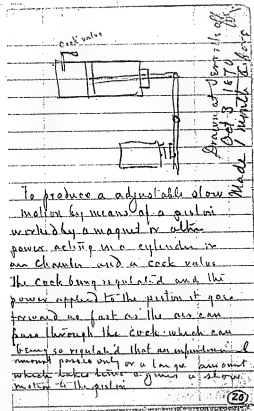 Cock valve
Drawn at Serrills off
Oct 3 1870
Made 1 month before
To produce a adjustable slow
motion by means of a piston
worked by a magnet or other
power acting in a cylinder in
air chamber and a cock valve
The cock being regulated and the
power applied to the piston it goes
forward as fast as the air can
pass through the cock which can
being so regulated that an
amount passes only or a large amount
which takes time & gives a slow
motion to the piston
20